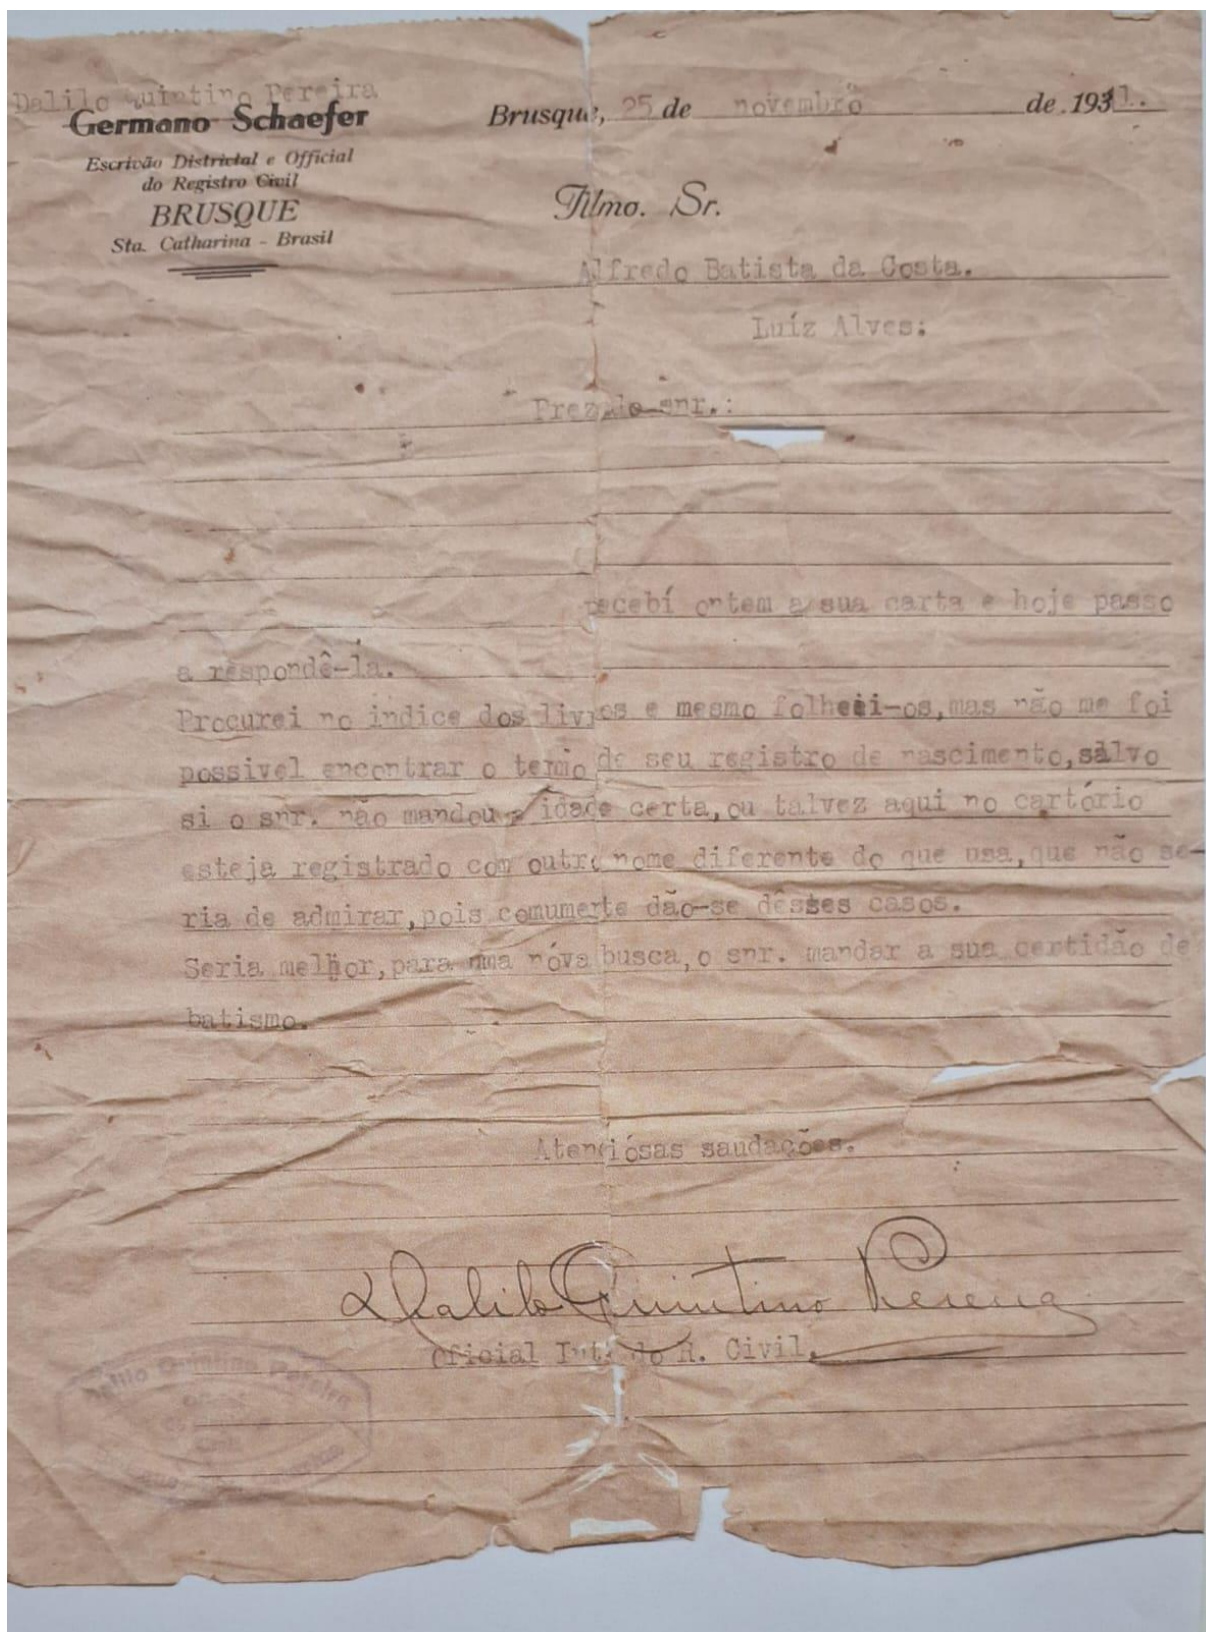 Dalilo Quintino Pereira
Germano Schaefer
Escrivão Districtal e Official
do Registro Civil
BRUSQUE
Sta. Catharina - Brasil
Brusque, 25 de novembro de 193
Illmo. Sr.
Alfredo Batista da Costa.
Luíz Alves:
Prezado snr.:
recebí ontem a sua carta e hoje passo
a respondê-la.
Procurei no indice dos livros e mesmo folheei-os, mas não me foi
possivel encontrar o termo de seu registro de nascimento, salvo
si o snr. não mandou a idade certa, ou talvez aqui no cartório
esteja registrado com outro nome diferente do que usa, que não se-
ria de admirar, pois comumente dão-se dêsses casos.
Seria melhor, para uma nóva busca, o snr. mandar a sua certidão de
batismo.
Atenciósas saudações.
Dalilo Quintino Pereira
Oficial Intº do R. Civil.
Dalilo Quintino Pereira